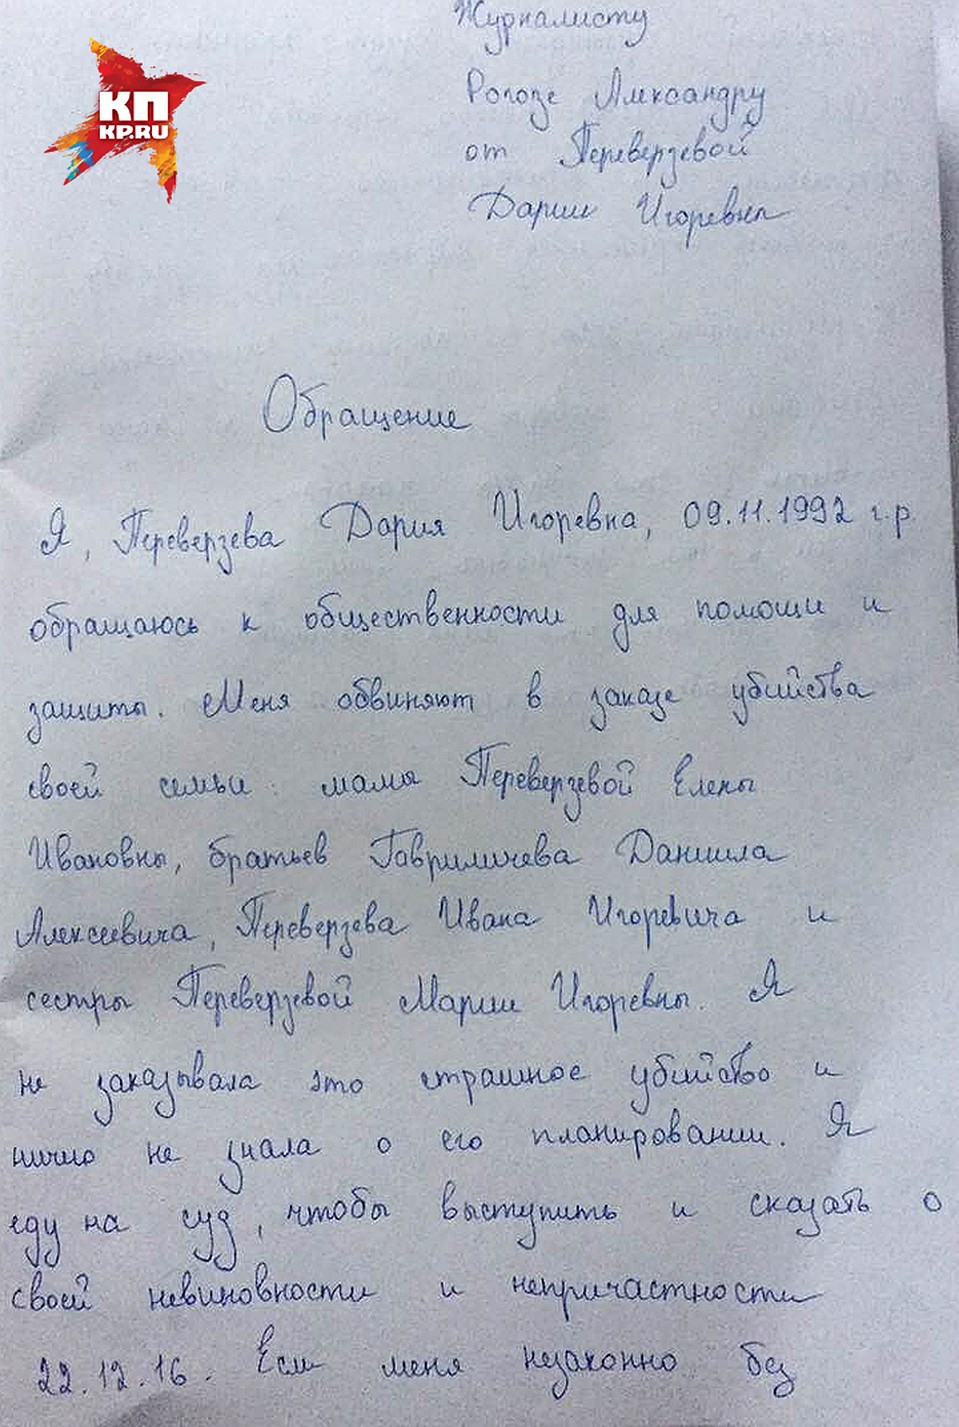 Журналисту
КП
KP.RU
Рогозе Александру
от Переверзевой
Дарии Игоревны
Обращение
Я, Переверзева Дария Игоревна, 09.11.1992 г.р.
обращаюсь к общественности для помощи и
защиты. Меня обвиняют в заказе убийства
своей семьи: мамы Переверзевой Елены
Ивановны, братьев Гавриличева Даниила
Алексеевича, Переверзева Ивана Игоревича и
сестры Переверзевой Марии Игоревны. Я
не заказывала это страшное убийство и
ничего не знала о его планировании. Я
еду на суд, чтобы выступить и сказать о
своей невиновности и непричастности
22.12.16. Если меня незаконно без